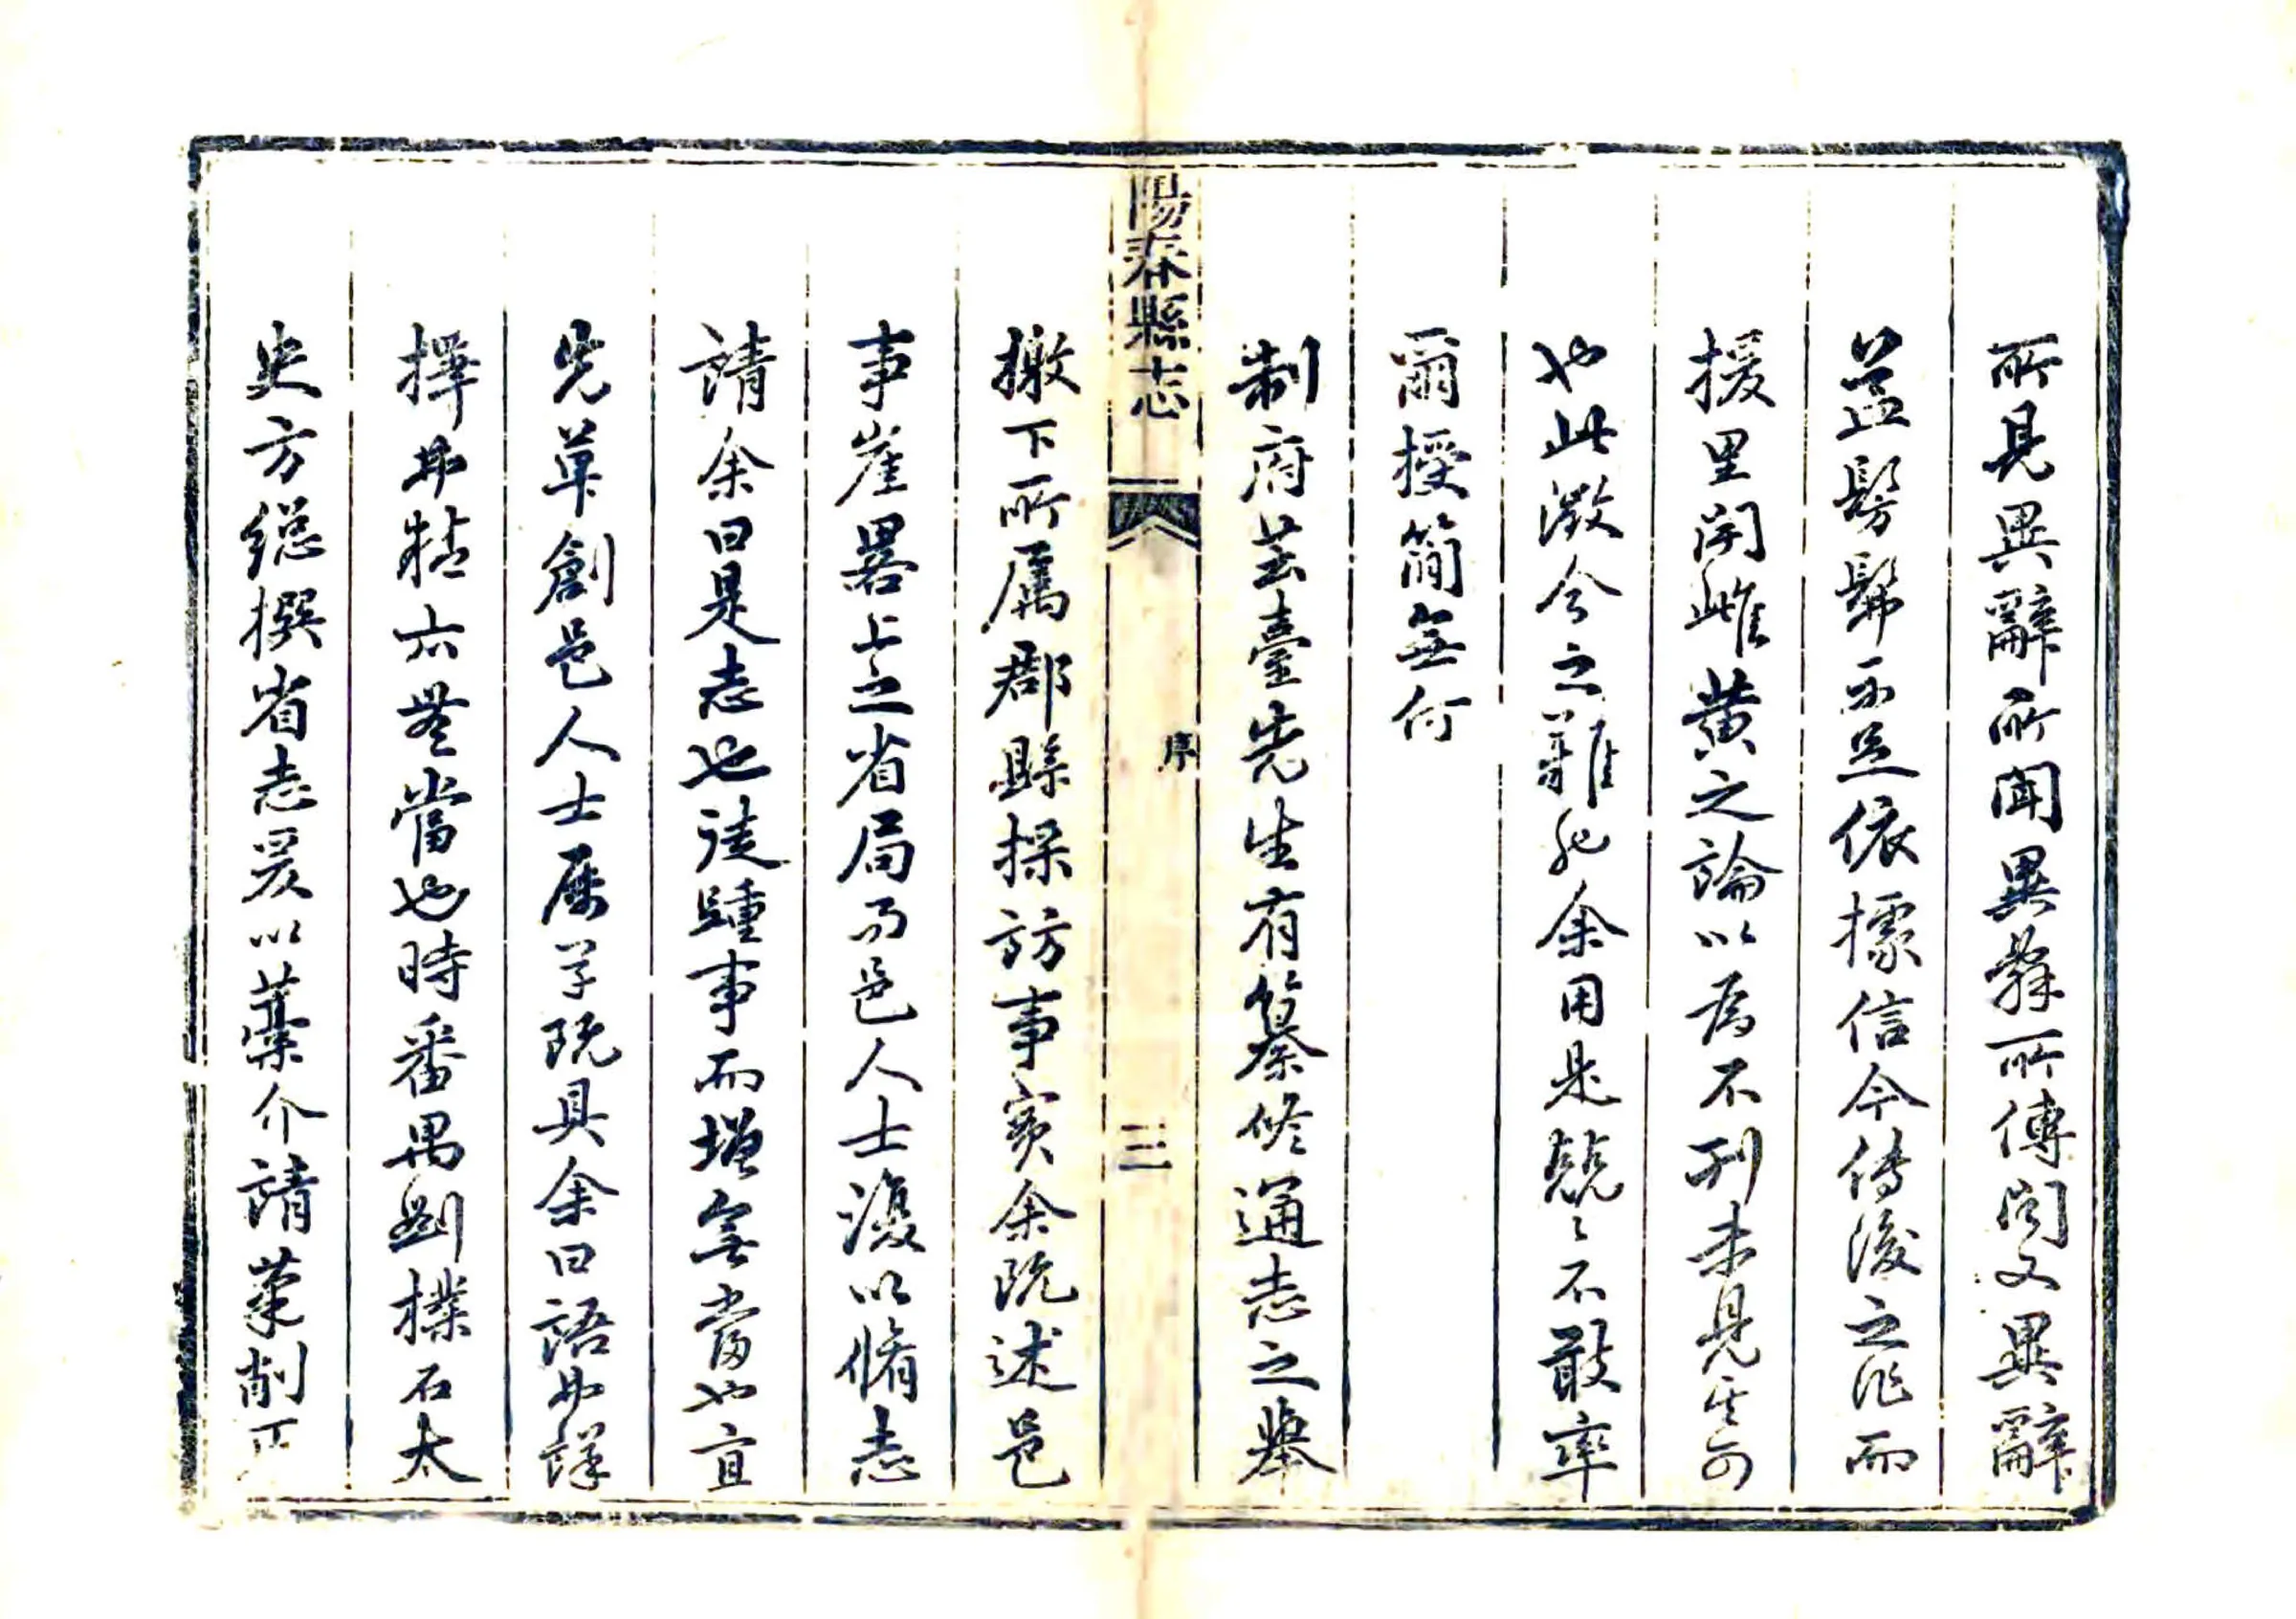 所見異辭所聞異辭所傳聞又異辭
益髣髴不足依據信今傳後之作而
援里閈雌黃之論以為不刊未見其可
也此激今之難承余用是兢〻不敢率
爾授簡無何
制府芸臺先生有纂修通志之舉
陽春縣志
序
三
檄下所屬郡縣採訪事實余既述邑
事崖畧上之省局而邑人士復以脩志
請余曰是志也徒踵事而增無當也宜
先草創邑人士屬草既具余曰語必詳
擇弗精亦無當也時番禺劉樸石太
史方總撰省志爰以藁介請筆削正